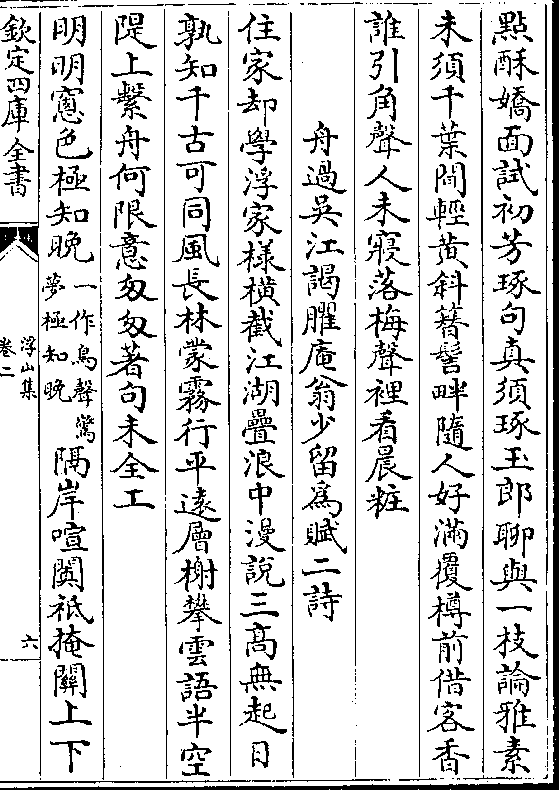 點酥嬌面試初芳琢句真須琢玉郎聊與一枝論雅素
未須千葉閗輕黃斜簪髻畔隨人好滿覆樽前借客香
誰引角聲人未寢落梅聲裡看晨粧
舟過吳江謁臞庵翁少留為賦二詩
住家却學浮家樣横截江湖疊浪中漫說三髙無起日
孰知千古可同風長林蒙霧行平遠層榭攀雲語半空
隄上繫舟何限意匆匆著句未全工
明明窻色極知晩一作鳥聲驚夢極知晩隔岸喧闐祗掩闗上下
欽定四庫全書
浮山集
卷二
六